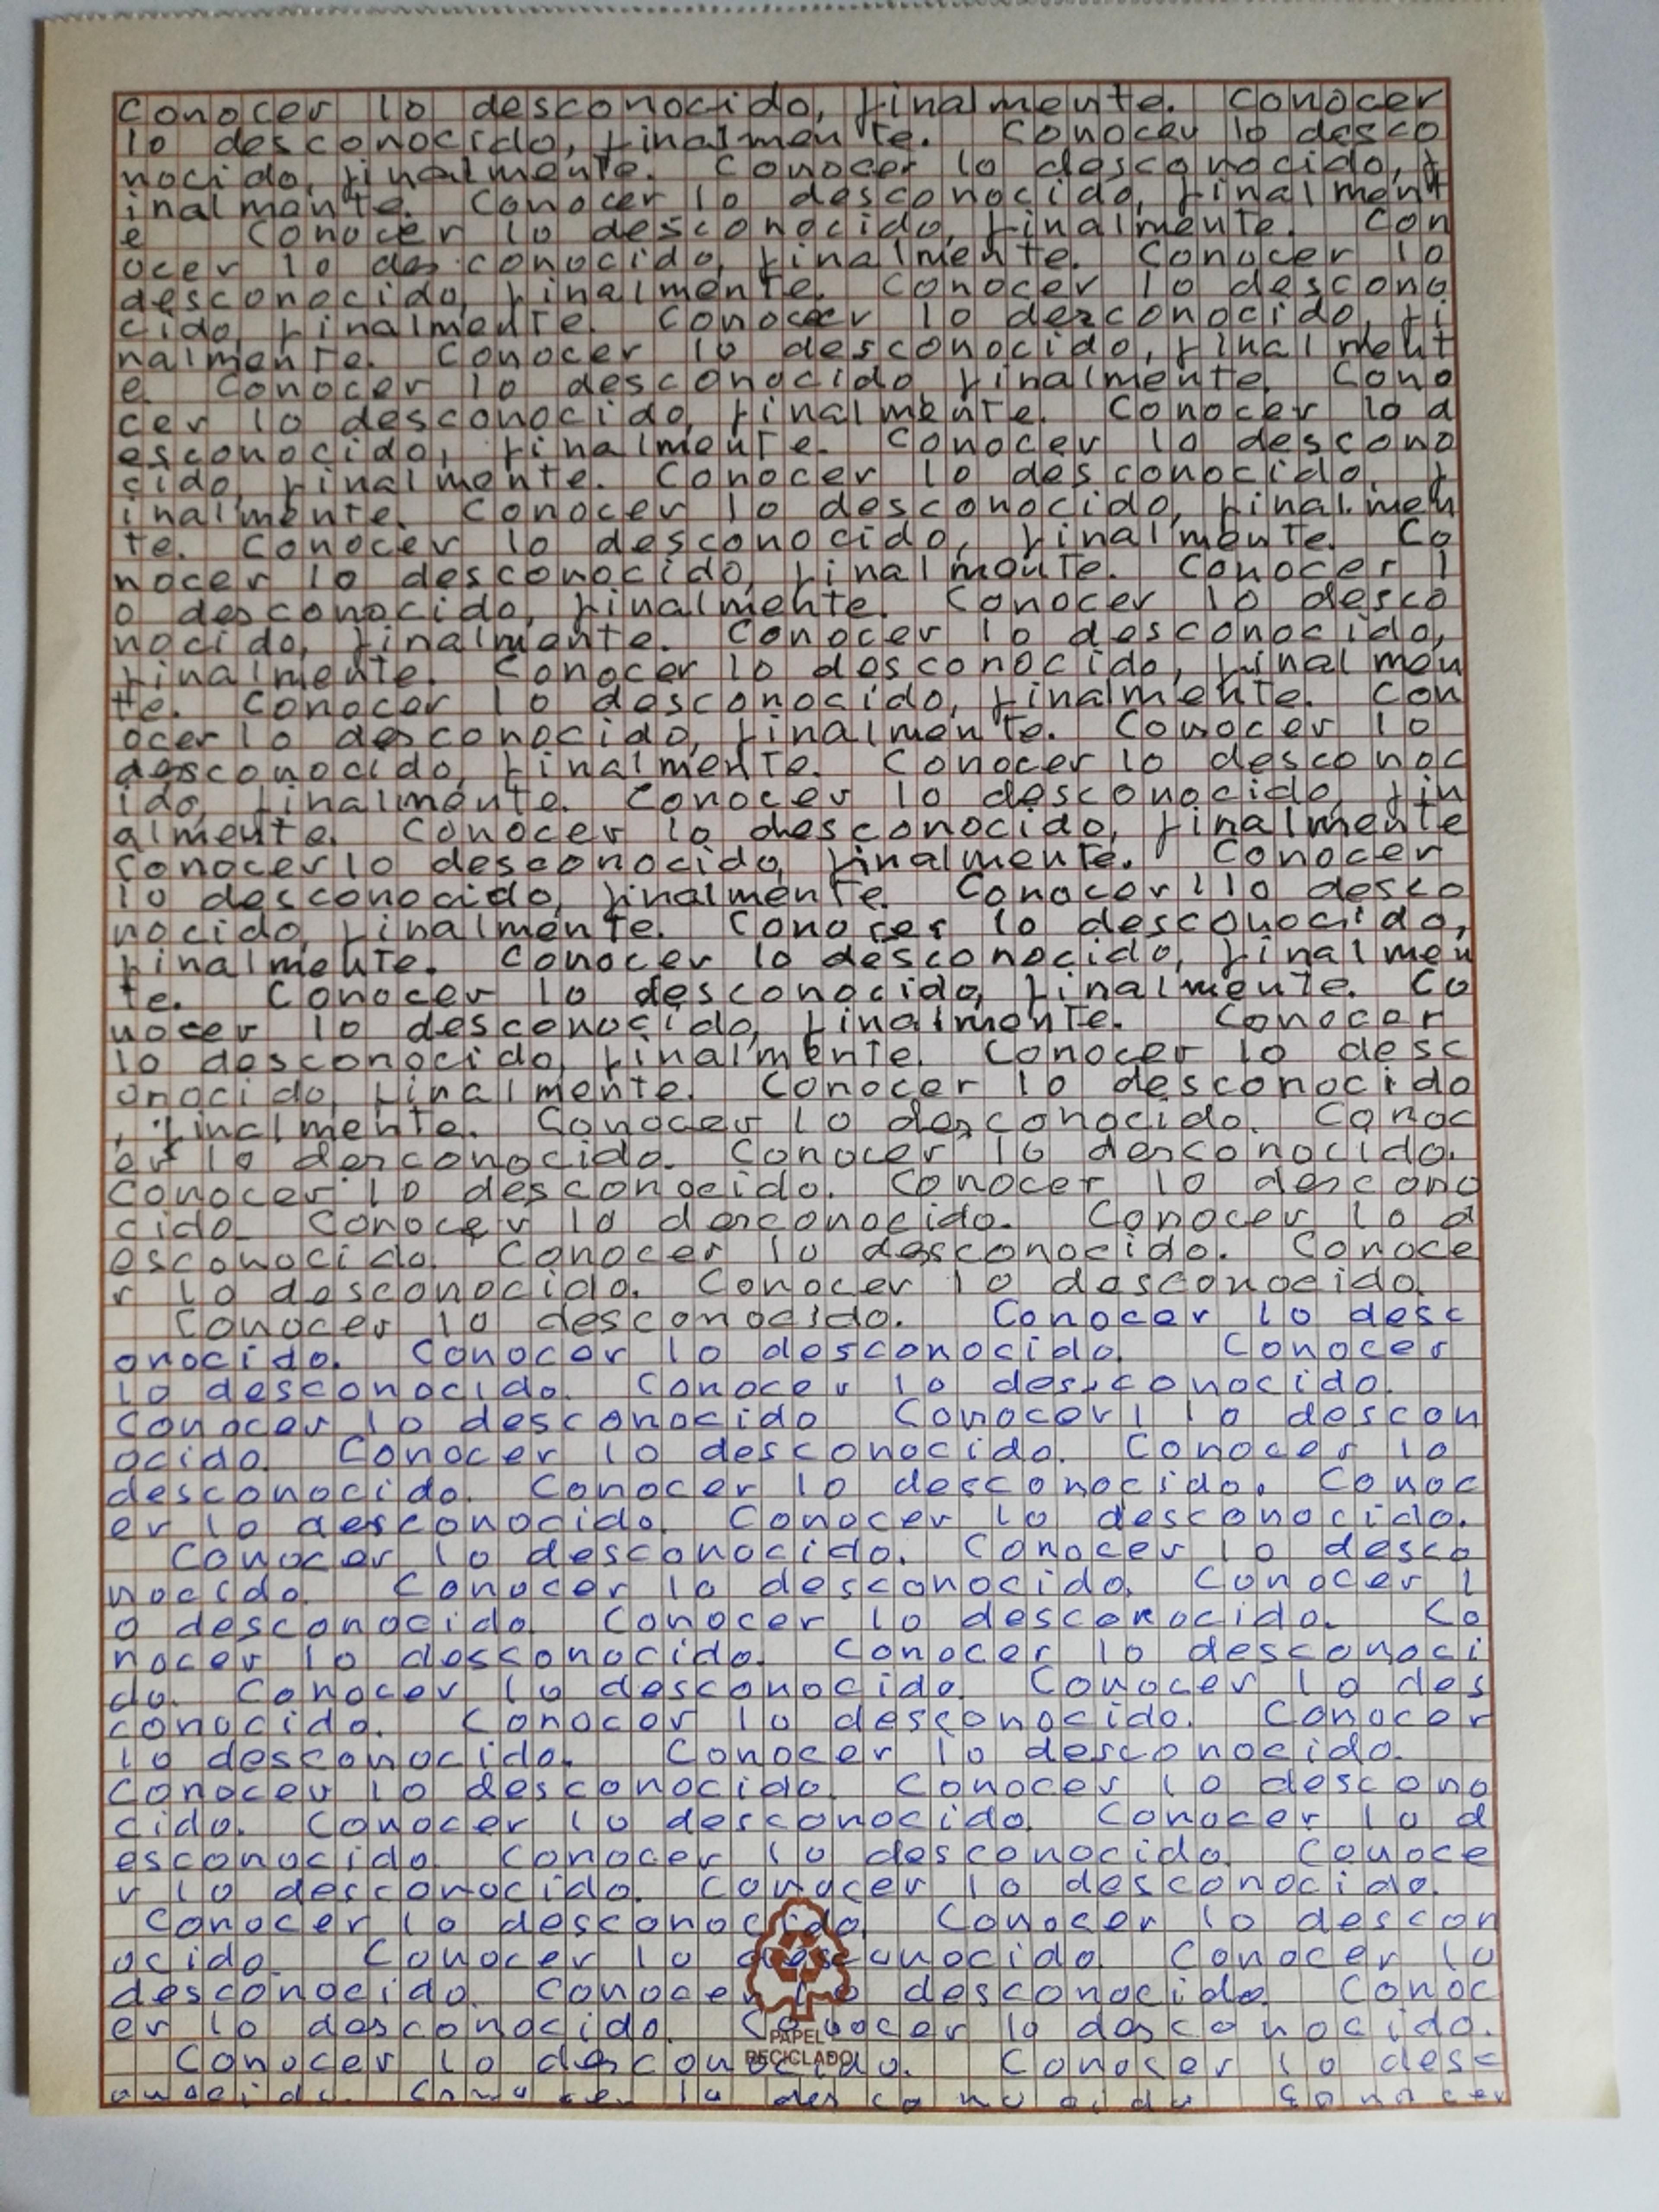 Conocer lo desconocido, finalmente. Conocer
lo desconocido, finalmente. Conocer lo desco
nocido, finalmente. Conocer lo desconocido, f
inalmente. Conocer lo desconocido, finalment
e Conocer lo desconocido, finalmente. Con
ocer lo desconocido, finalmente. Conocer lo
desconocido, finalmente. Conocer lo descono
cido, finalmente. Conocer lo desconocido, fi
nalmente. Conocer lo desconocido, finalment
e. Conocer lo desconocido, finalmente. Cono
cer lo desconocido, finalmente. Conocer lo d
esconocido, finalmente. Conocer lo descono
cido, finalmente. Conocer lo desconocido, f
inalmente. Conocer lo desconocido, finalmen
te. Conocer lo desconocido, finalmente. Co
nocer lo desconocido, finalmente. Conocer l
o desconocido, finalmente. Conocer lo desco
nocido, finalmente. Conocer lo desconocido,
finalmente. Conocer lo desconocido, finalmen
te. Conocer lo desconocido, finalmente. Con
ocer lo desconocido, finalmente. Conocer lo
desconocido, finalmente. Conocer lo desconoc
ido, finalmente. Conocer lo desconocido, fin
almente. Conocer lo desconocido, finalmente
Conocer lo desconocido, finalmente. Conocer
lo desconocido, finalmente. Conocer llo desco
nocido, finalmente. Conocer lo desconocido,
finalmente. Conocer lo desconocido, finalmen
te. Conocer lo desconocido, finalmente. Co
nocer lo desconocido, finalmente. Conocer
lo desconocido, finalmente. Conocer lo desc
onocido, finalmente. Conocer lo desconocido
, finalmente. Conocer lo desconocido. Conoc
er lo desconocido. Conocer lo desconocido.
Conocer lo desconocido. Conocer lo descono
cido. Conocer lo desconocido. Conocer lo d
esconocido. Conocer lo desconocido. Conoce
r lo desconocido. Conocer lo desconocido.
Conocer lo desconocido. Conocer lo desc
onocido. Conocer lo desconocido. Conocer
lo desconocido. Conocer lo desconocido.
Conocer lo desconocido Conocer l lo descon
ocido. Conocer lo desconocido. Conocer lo
desconocido. Conocer lo desconocido. Conoc
er lo desconocido. Conocer lo desconocido.
Conocer lo desconocido. Conocer lo desco
nocido. Conocer lo desconocido. Conocer l
o desconocido. Conocer lo desconocido. Co
nocer lo desconocido. Conocer lo desconoci
do. Conocer lo desconocido. Conocer lo des
conocido. Conocer lo desconocido. Conocer
lo desconocido. Conocer lo desconocido.
Conocer lo desconocido. Conocer lo descono
cido. Conocer lo desconocido. Conocer lo d
esconocido. Conocer lo desconocido. Conoce
r lo desconocido. Conocer lo desconocido.
Conocer lo desconocido. Conocer lo descon
ocido. Conocer lo desconocido. Conocer lo
desconocido. Conocer lo desconocido. Conoc
er lo desconocido. Conocer lo desconocido.
PAPEL
Conocer lo desconocido. Conocer lo desc
RECICLADO
onocido. Conocer lo desconocido Conocer